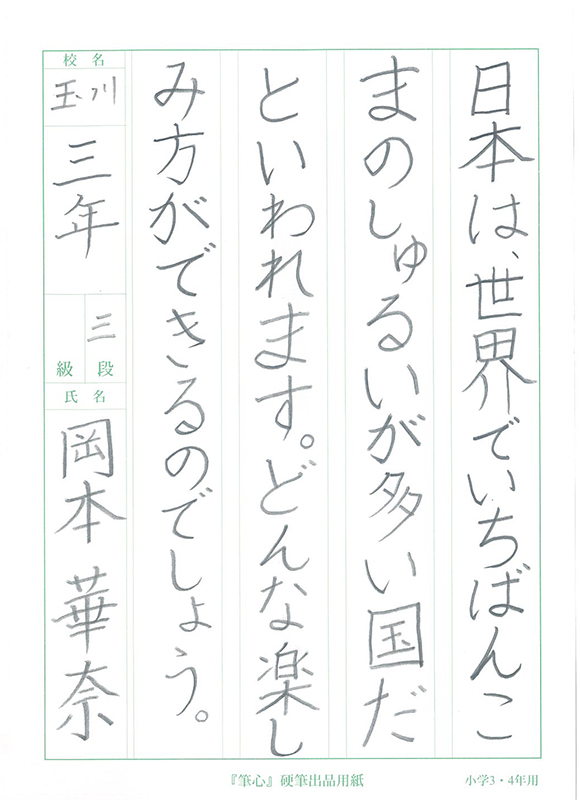 日本は、世界でいちばんこ
まのしゅるいが多い国だ
といわれます。どんな楽し
み方ができるのでしょう。
校名
玉川
三年
三段
級
氏名
岡本華奈
『筆心』硬筆出品用紙
小学3・4年用